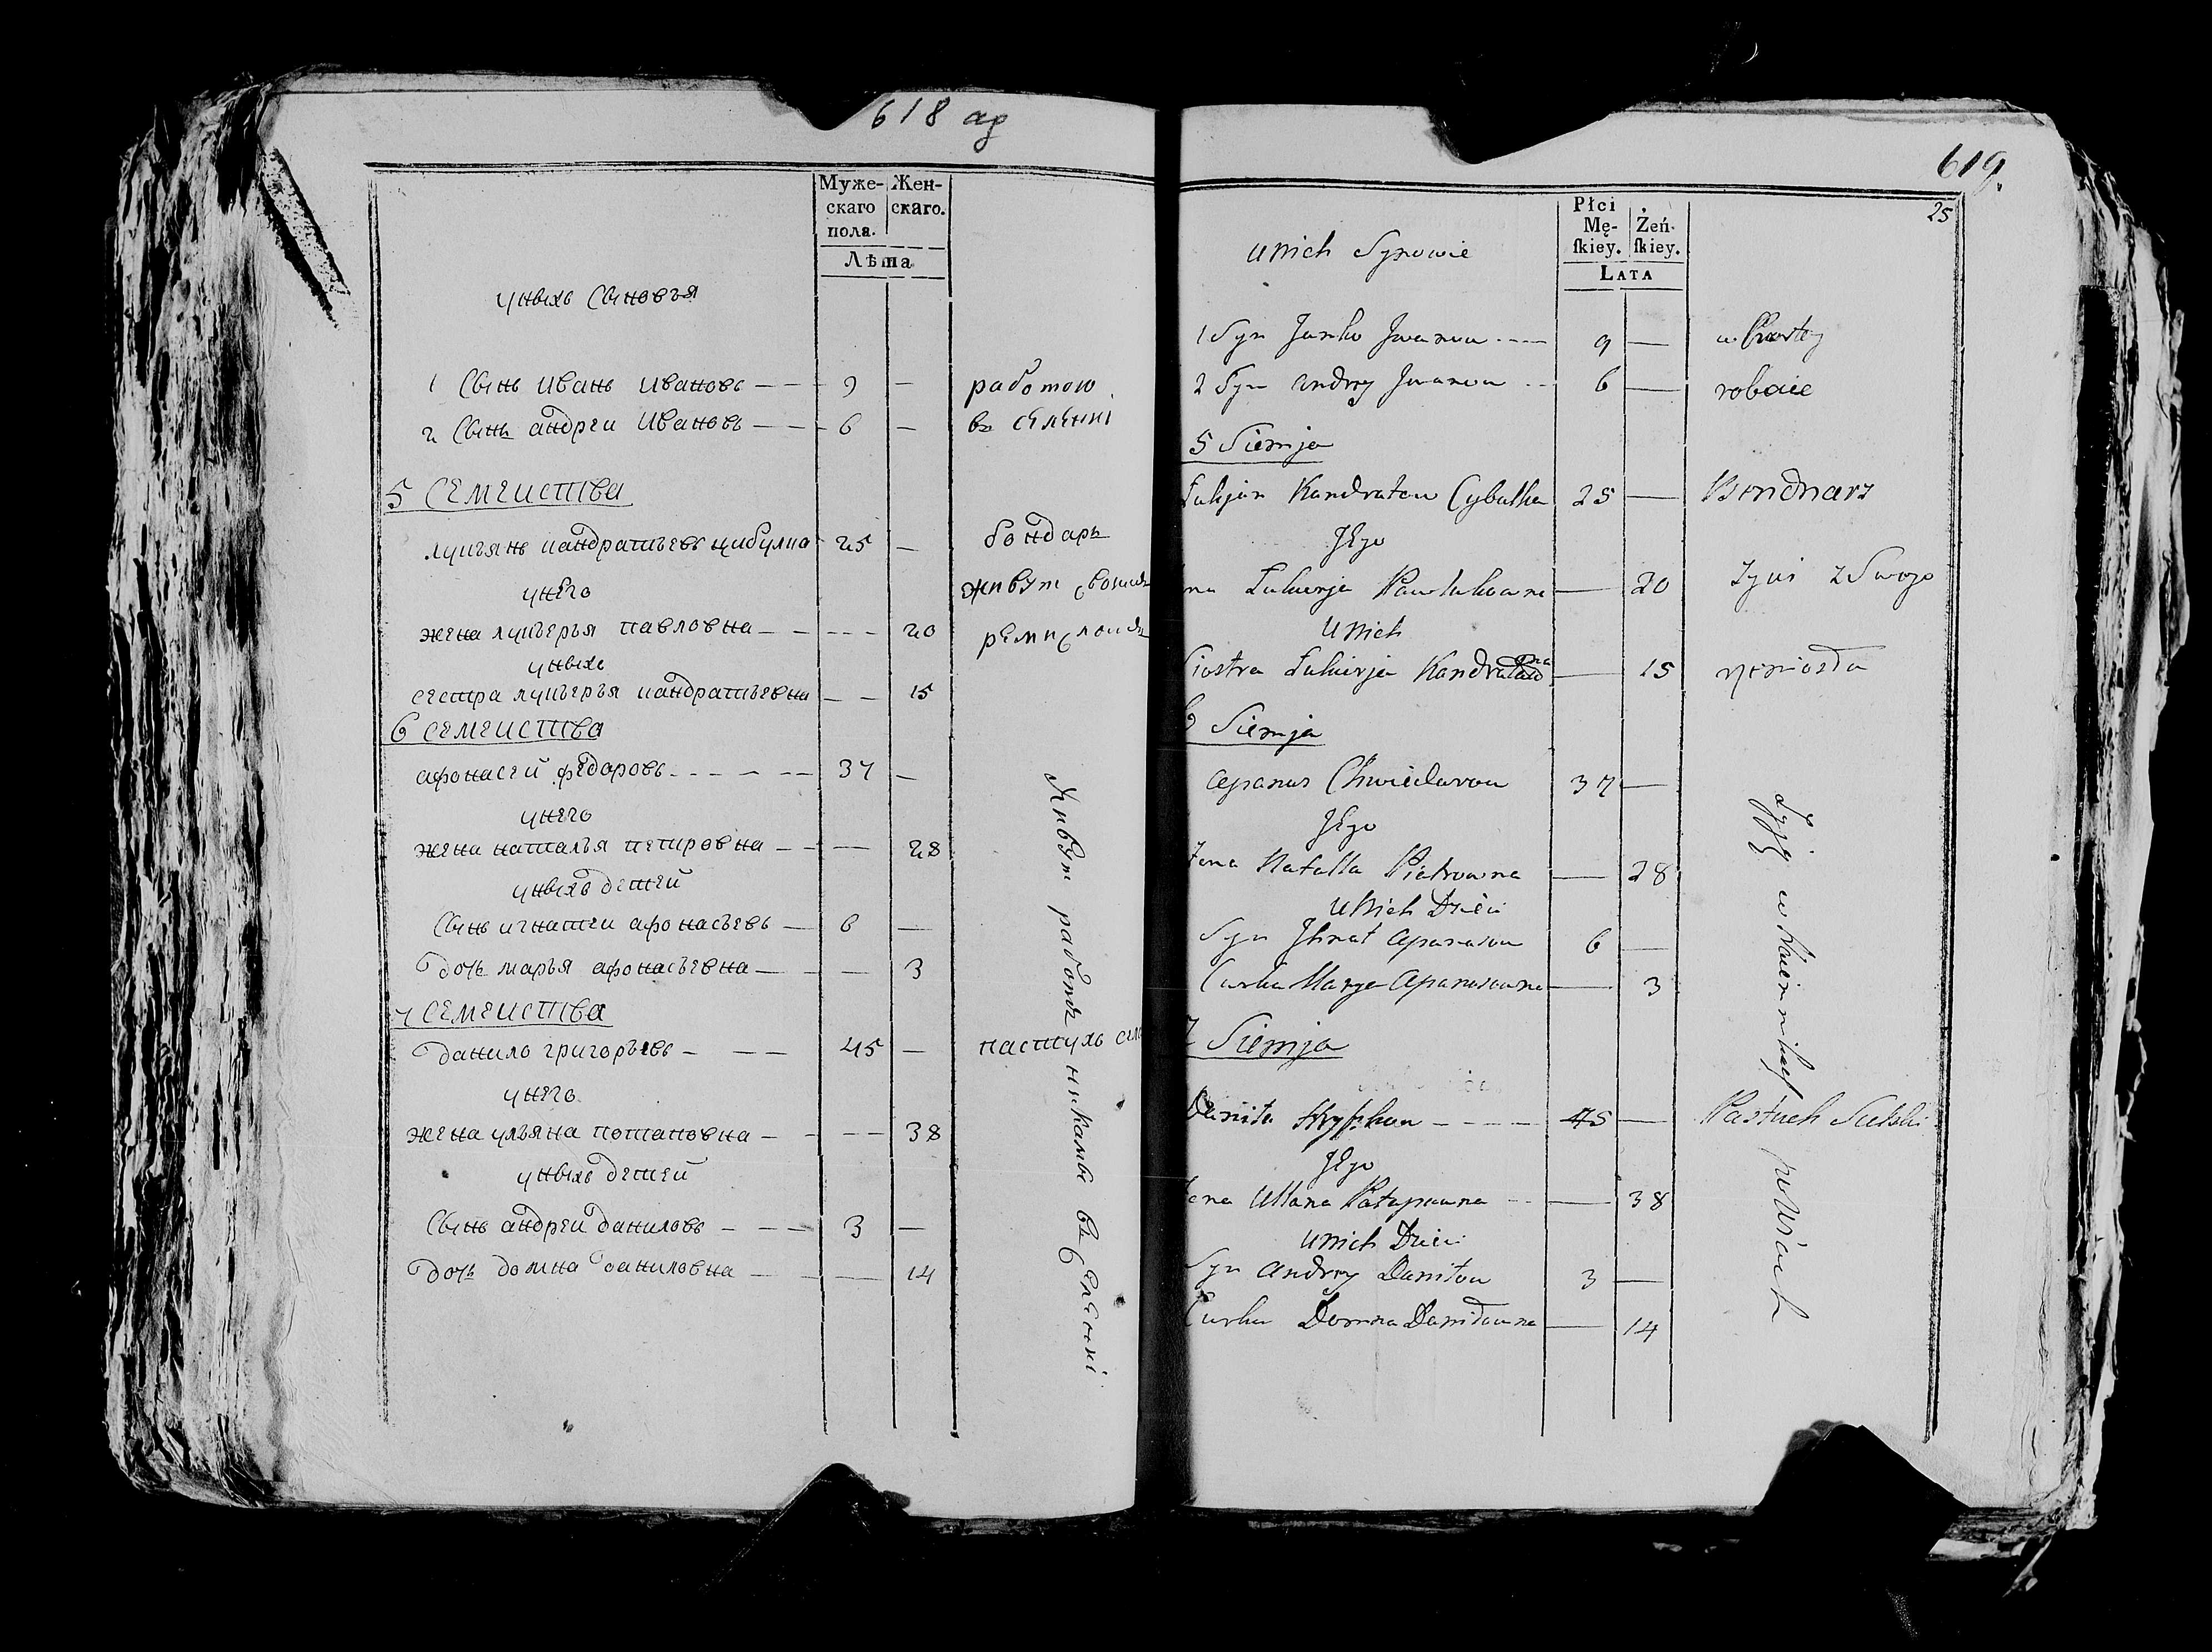 618 аб
Муже-
скаго
пола.
Жен-
скаго.
Лѣта
уныхъ Сыновья
1 Сынъ Иванъ Ивановъ 9 —
работою
2 Сынъ андреи Ивановъ 6 —
въ селени
5 Семеиства
лукьянъ кандратьевъ цибулка 25 —
бондарь
унего
живут своимъ
жена лукерья павловна 20
ремислоимъ
уныхъ
сестра лукерья кандратьевна 15
6 семеиства
афонасеи федоровъ 37 —
унего
жена наталья петровна 28
уныхъ детеи
Сынъ игнатеи афонасьевъ 6 —
дочь марья афонасьевна 3
7 Семеиства
данило григорьевъ 45 —
пастухъ
унего
жена ульяна потаповна 38
уныхъ детеи
Сынъ андреи даниловъ 3 —
дочь домна даниловна 14
Живут работникамы въ селени
619.
25
Płci
Mę-
ſkiey.
Żeń-
ſkiey.
LATA
unich Synowie
1 Syn Janko Iwanow 9 —
2 Syn Andrey Iwanow 6 —
robocie
5 Siemja
Łukjan Kandratow Cybulka 25 —
Bendnarz
Jego
Łukierja Pawlukowna — 20
Żyui z Swego
unich
Siostra Łukierja Kandratowna — 15
rzemiosła
6 Siemja
Apanas Chwiedorow 37 —
Jego
Żona Natalla Pietrowna — 28
unich Dzieci
Syn Ihnat Apanasow 6 —
Curka Marya Apanasowna — 3
7 Siemja
Daniło Hryszkow 45 —
Pastuch Sielski
Jego
Żona Ullana Patapowna — 38
unich Dzieci
Syn Andrey Daniłow 3 —
Curka Domna Daniłowna — 14
Żyją w